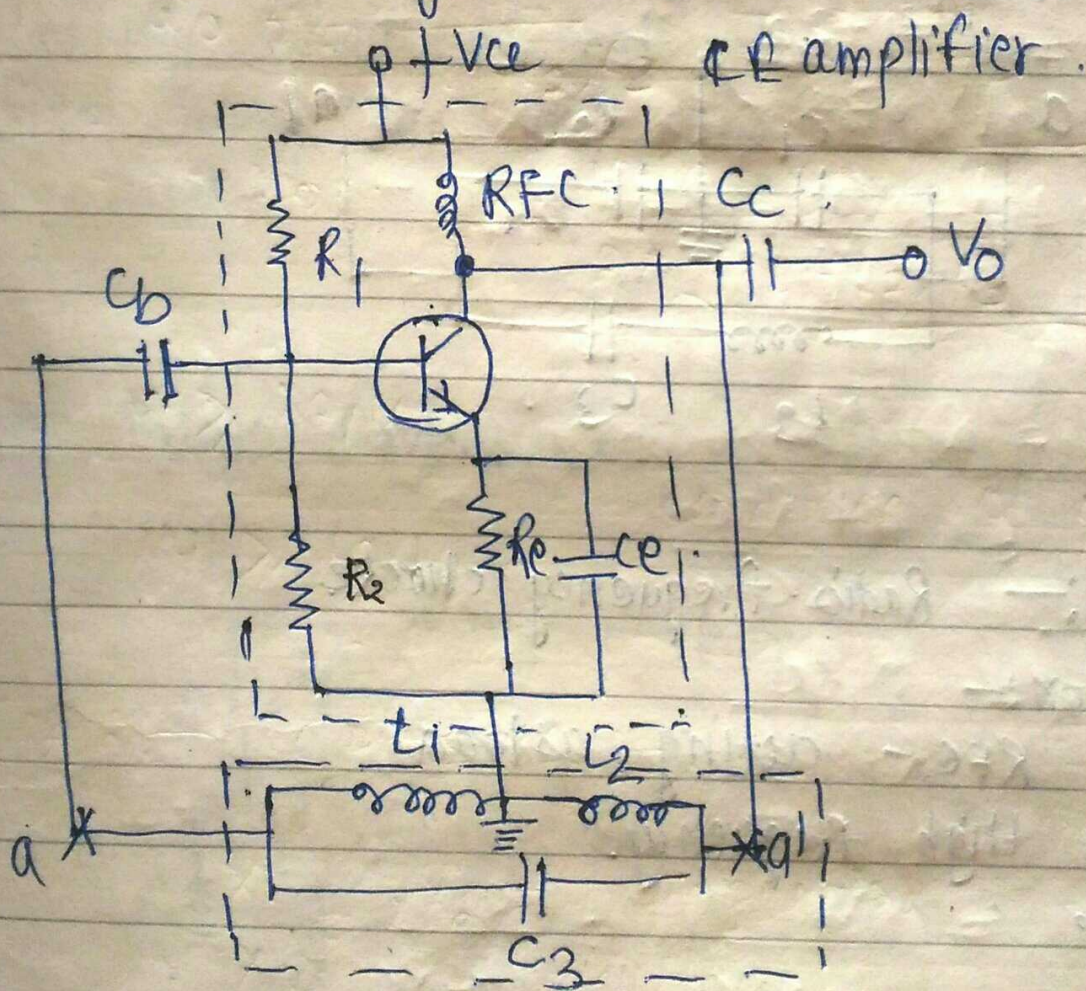 +Vcc
CE amplifier.
RFC
Cc
R1
Vo
Cb
Re
Ce
R2
L1
L2
a
a'
C3